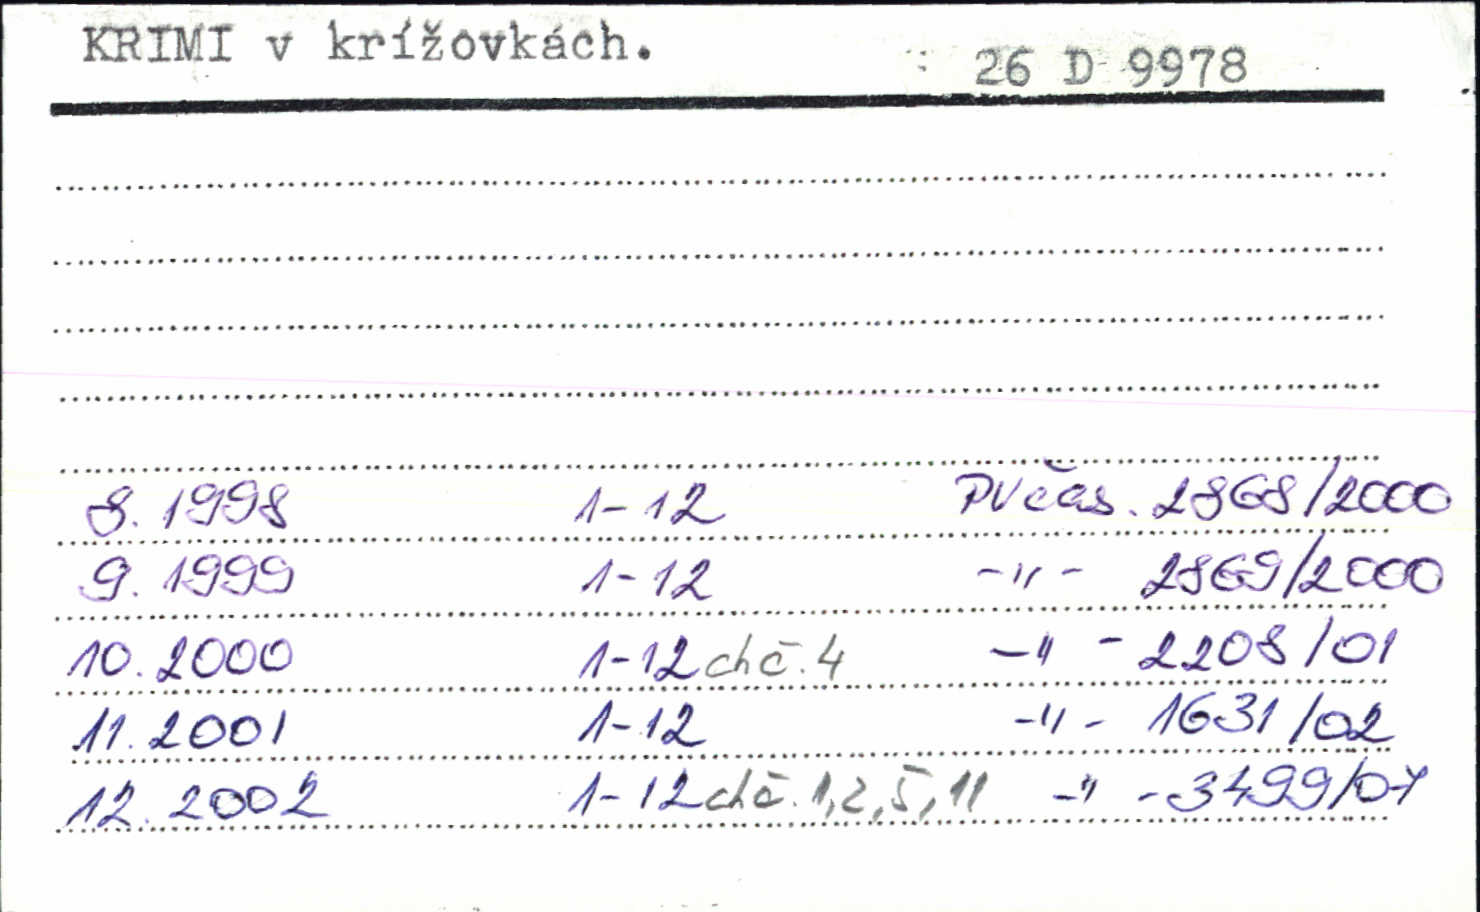 KRIMI v krížovkách.
26 D 9978
8. 1998 1-12 PVčas. 2868/2000
9. 1999 1-12 -"- 2869/2000
10. 2000 1-12 chč. 4 -"- 2208/01
11. 2001 1-12 -"- 1631/02
12. 2002 1-12 chč. 1,2,5,11 -"- 3499/04